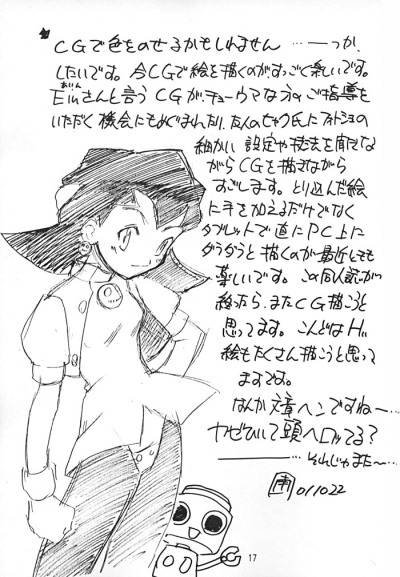 CGで色をのせるかもしれません…──っか、
したいです。今CGで絵を描くのが、すっごく楽しいです。
Einさんと言うCGが、チョーウマな方のご指導を
おいん
いただく機会にもめぐまれたり、友人のヒャク氏にフォトショの
細かい設定や技法を聞きな
がらCGを描きながら
すごします。とり込んだ絵
に手を加えるだけでなく
タブレットで直にPC上に
ダラダラと描くのが最近とても
楽しいです。この同人誌が
終ったら、またCG描こうと
思ってます。こんどはHい
絵もたくさん描こうと思って
ますです。
なんか文章ヘンですねー…
カゼひいて頭ヘロってる?
──────…それじゃまた〜…
011022
17